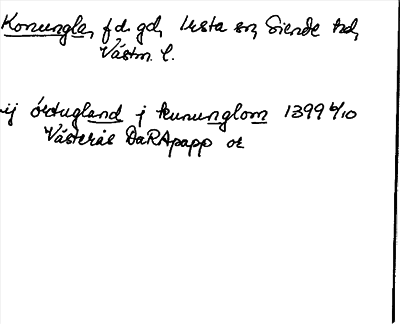 Konungla, f.d. gd, Irsta sn, Siende hd,
Västm. l.
ij örtugland j kununglom 1399 6/10
Västerås DaRApapp or